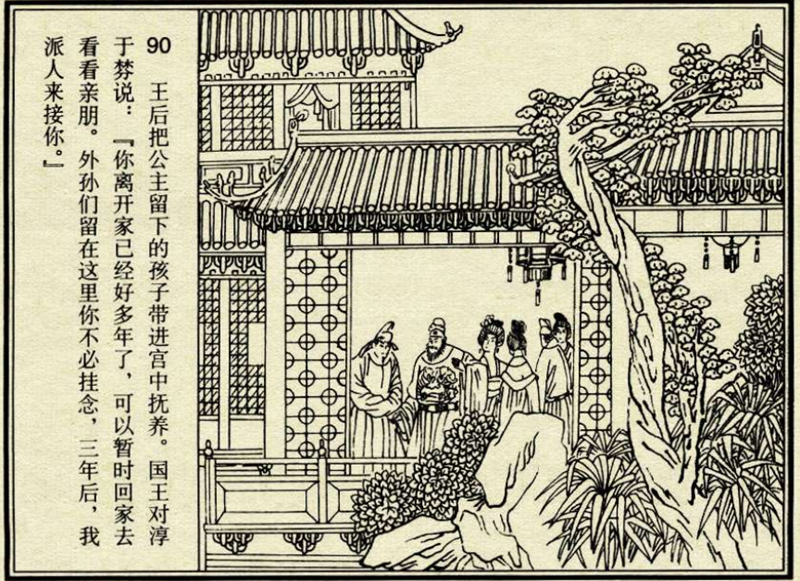 90 王后把公主留下的孩子带进宫中抚养。国王对淳
于棼说：『你离开家已经好多年了，可以暂时回家去
看看亲朋。外孙们留在这里你不必挂念，三年后，我
派人来接你。』